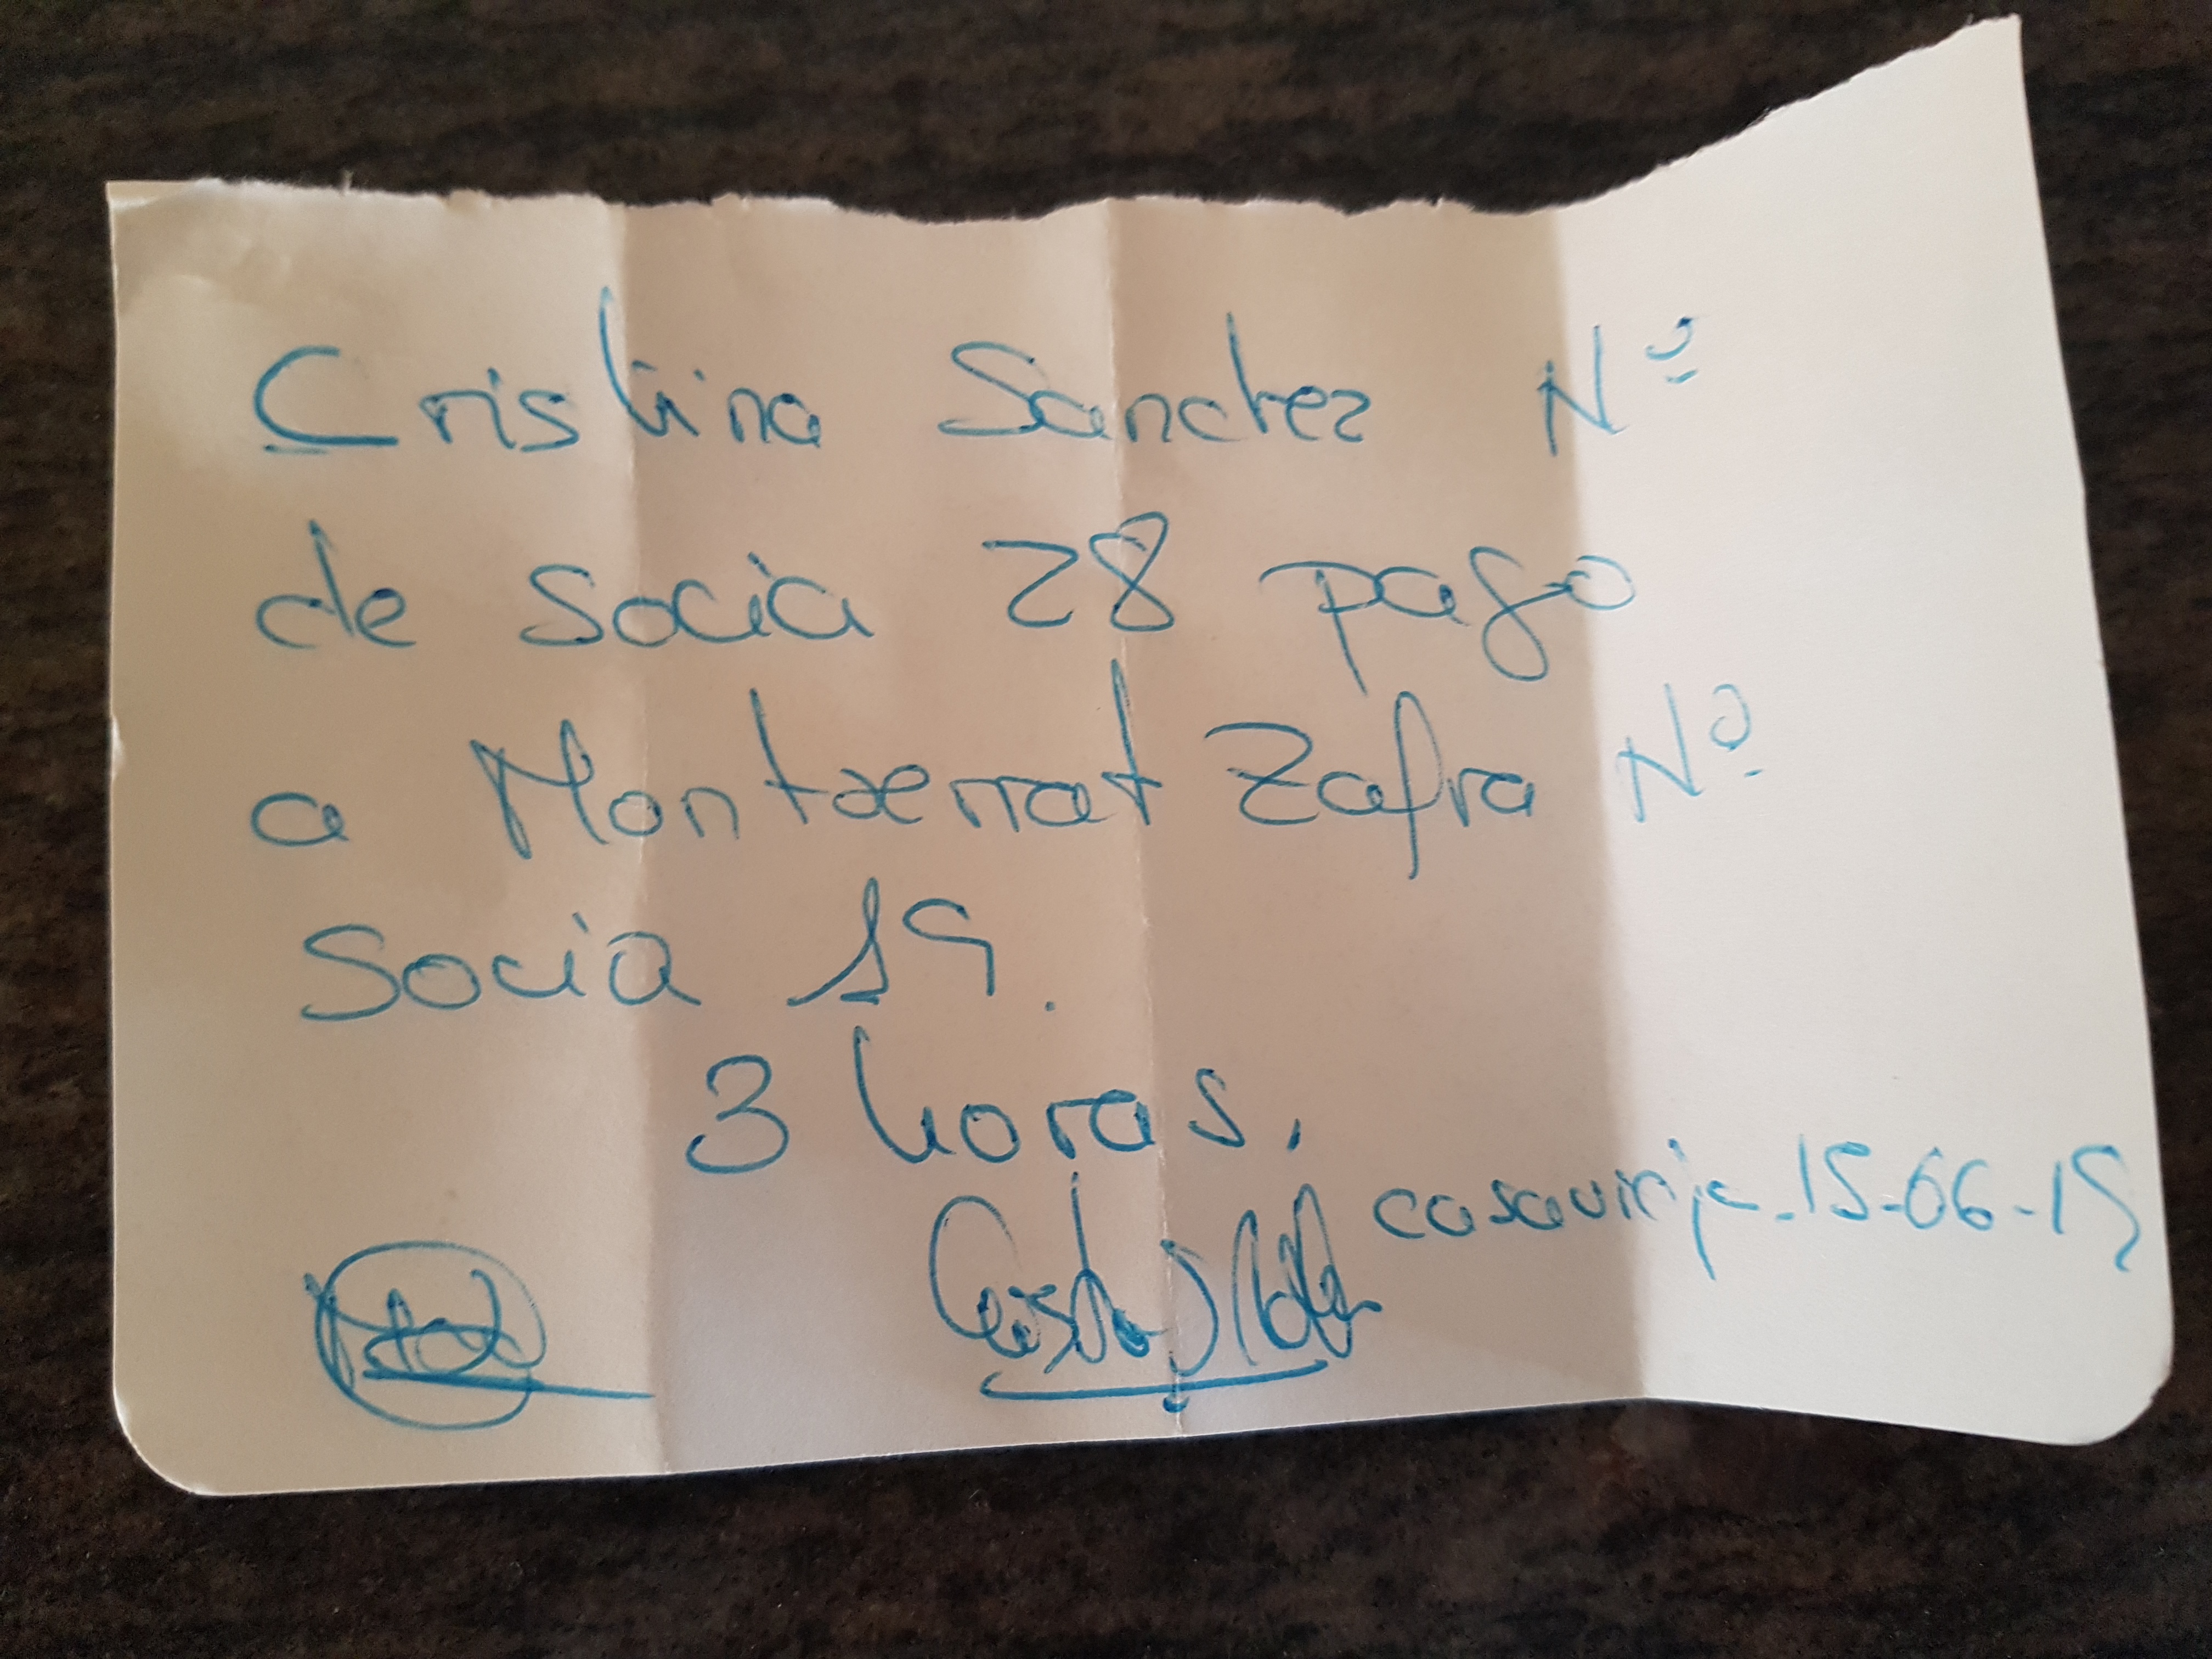 Cristina Sanchez Nº
de socia 28 pago
a Montserrat Zafra Nº
Socia 19.
3 horas.
15-06-19